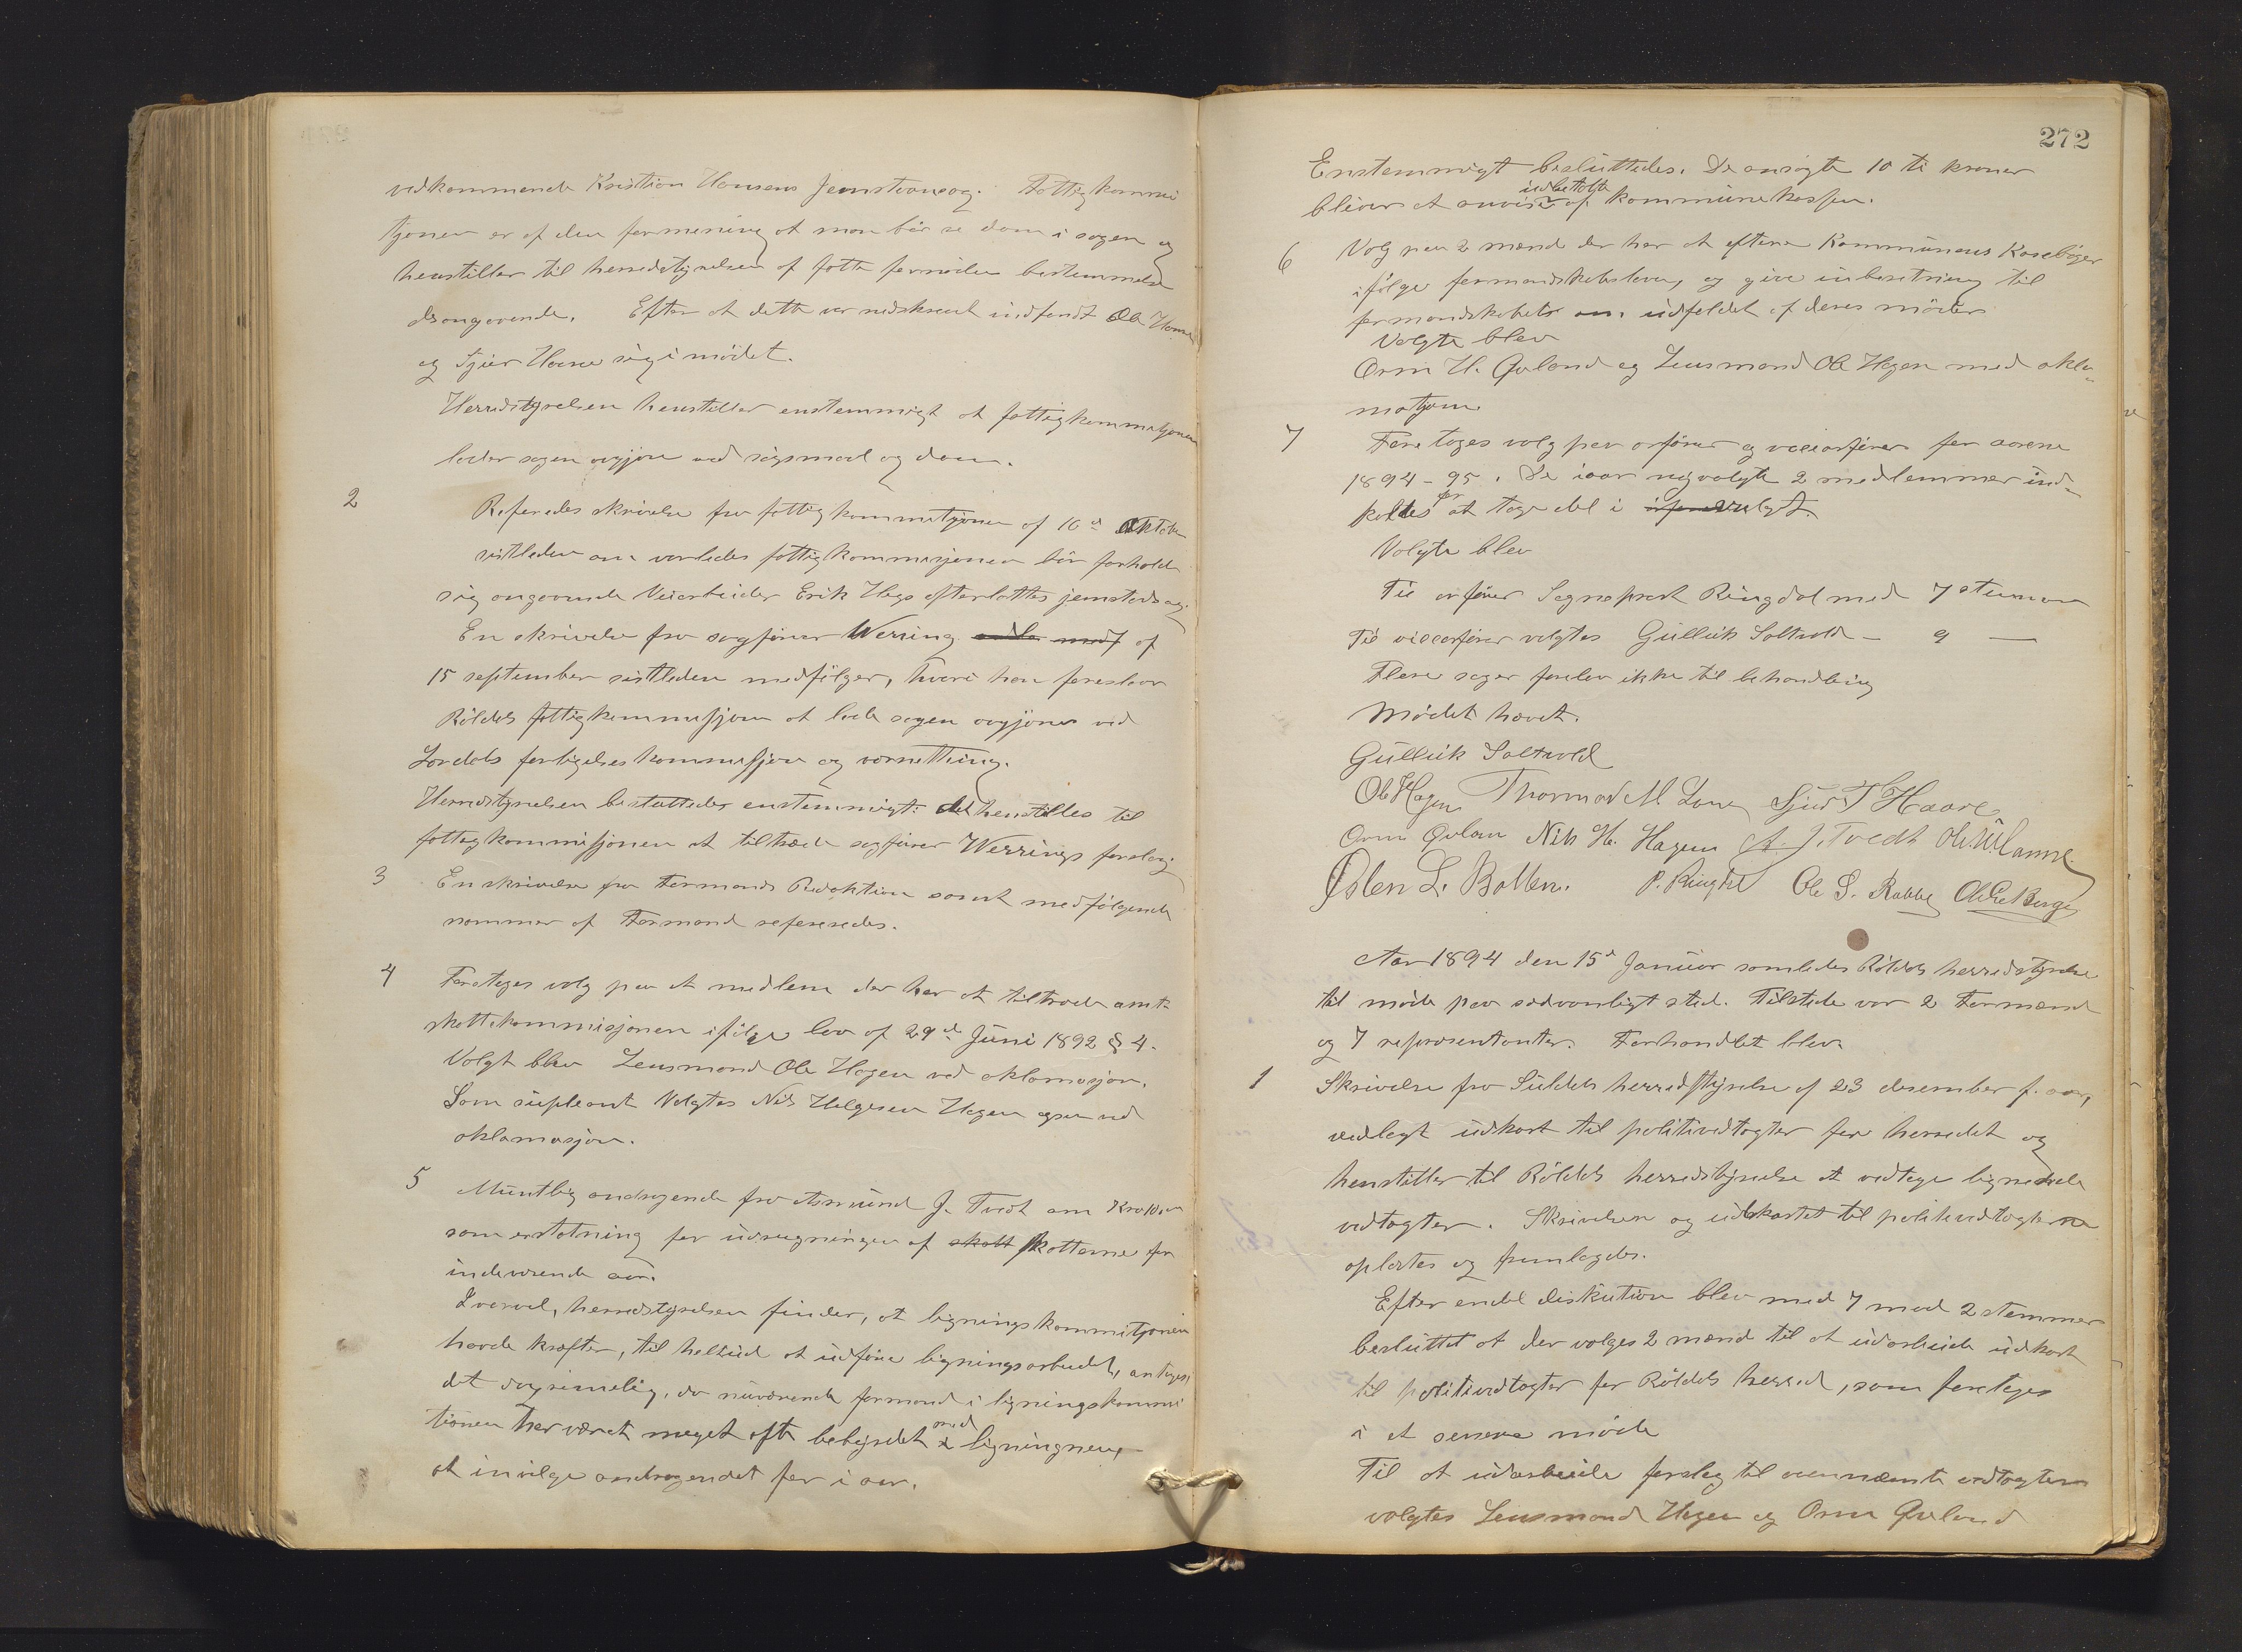 vedkommende Kristian Hansens Jemstavnsag. Fattigkommi
tjonen er af den formening at man bør se dom i sagen og
henstiller til herredstyrelsen at fatte fornøden bestemmelse
desangaaende. Efter at dette var nedskrevet indfandt Ole
og Sjur Haare sig i mødet.
Herredstyrelsen henstiller enstemmigt at fattigkommitjonen
lader sagen avgjøre ved søgsmaal og dom.
2 Referedes skrivelse fra fattigkommitjonen af 10de Oktober
sistleden om vorledes fattigkommisjonen bør forholde
sig angaaende Veiarbeider Erik Hegs efterlattes jemstedsag.
En skrivelse fra sagfører Werring af
15 september sistleden medfølger, hvori han foreslaar
Röldals fattigkommissjon at lade sagen avgjøres ved
Søvdals forligelseskommissjon og
Herredstyrelsen besluttedes enstemmigt: det henstilles til
fattigkommissjonen at tiltræde sagfører Werrings forslag.
3 En skrivelse fra Formands Redaktion samt medfølgende
nommer af Formand refereredes.
4 Foretoges valg paa et medlem der har at tiltræde amts
skattekommisjonen ifølge lov af 29de Juni 1892 § 4.
Valgt blev Lensmand Ole Hagen ved aklamasjon.
Som supleant Valgtes Nils Helgesen Hagen ogsaa ved
aklamasjon.
5 Muntlig andragende fra Asmund J. Tvedt om Kro 10,00
som erstatning for udregningen af skatt skatterne for
indeværende aar.
herredstyrelsen finder, at ligningskommitjonen
havde kræfter, til at udføre ligningsarbeidet, antages
det da nuværende formand i ligningskommi
tionen har været meget oft bebyrdet med ligningnene,
at invilge andragendet for i aar.
272
Enstemmigt besluttedes. De ansøgte 10 ti kroner
bliver at anvise udbetalte af kommunekassen.
6 Valg paa 2 mænd der har at eftersee Kommunens Kasebøger
ifølge formandskabsloven, og give inberetning til
formandskabet om udfaldet af deres møder
Valgte blev
Orm H. Qvaland og Lensmand Ole Hagen med akla-
matjon.
7 Foretoges valg paa orfører og viceorfører for aarene
1894-95. De iaar nyvalgte 2 medlemmer ind-
kaldes for at tage del i valgt.
Valgte blev
Til orfører Sognaprest Ringdal med 7 stemmer
Til viceorfører valgtes Gullik Saltvold — 9 —
Flere sager forelaa ikke til behandling
Mødet hævet.
Gullik Saltvold
Ole Hagen Thormod M Lone Sjur T Haare
Orm Qvalan Nils H. Hagen A. J. Tvedt
Østen L. Botten. P. Ringdal Ole S. Rabbe
Aar 1894 den 15de Januar samledes Röldals herredstyrelse
til møde paa sædvanligt sted. Tilstede var 2 Formænd
og 7 representanter. Forhandlet blev.
1 Skrivelse fra Suldals herredstyrelse af 23 desember f. aar,
vedlagt udkast til politivedtægter for herredet og
henstiller til Röldals herredstyrelse at vedtage lignende
vedtægter. Skrivelsen og udkastet til politivedtægterne
oplæstes og fremlagdes.
Efter endel diskution blev med 7 mod 2 stemmer
besluttet at der vælges 2 mænd til at udarbeide udkast
til politivedtægter for Röldals herred, som foretages
i et senere møde
Til at udarbeide forslag til ovennævnte vedtægter
valgtes Lensmand Hagen og Orm Qvaland